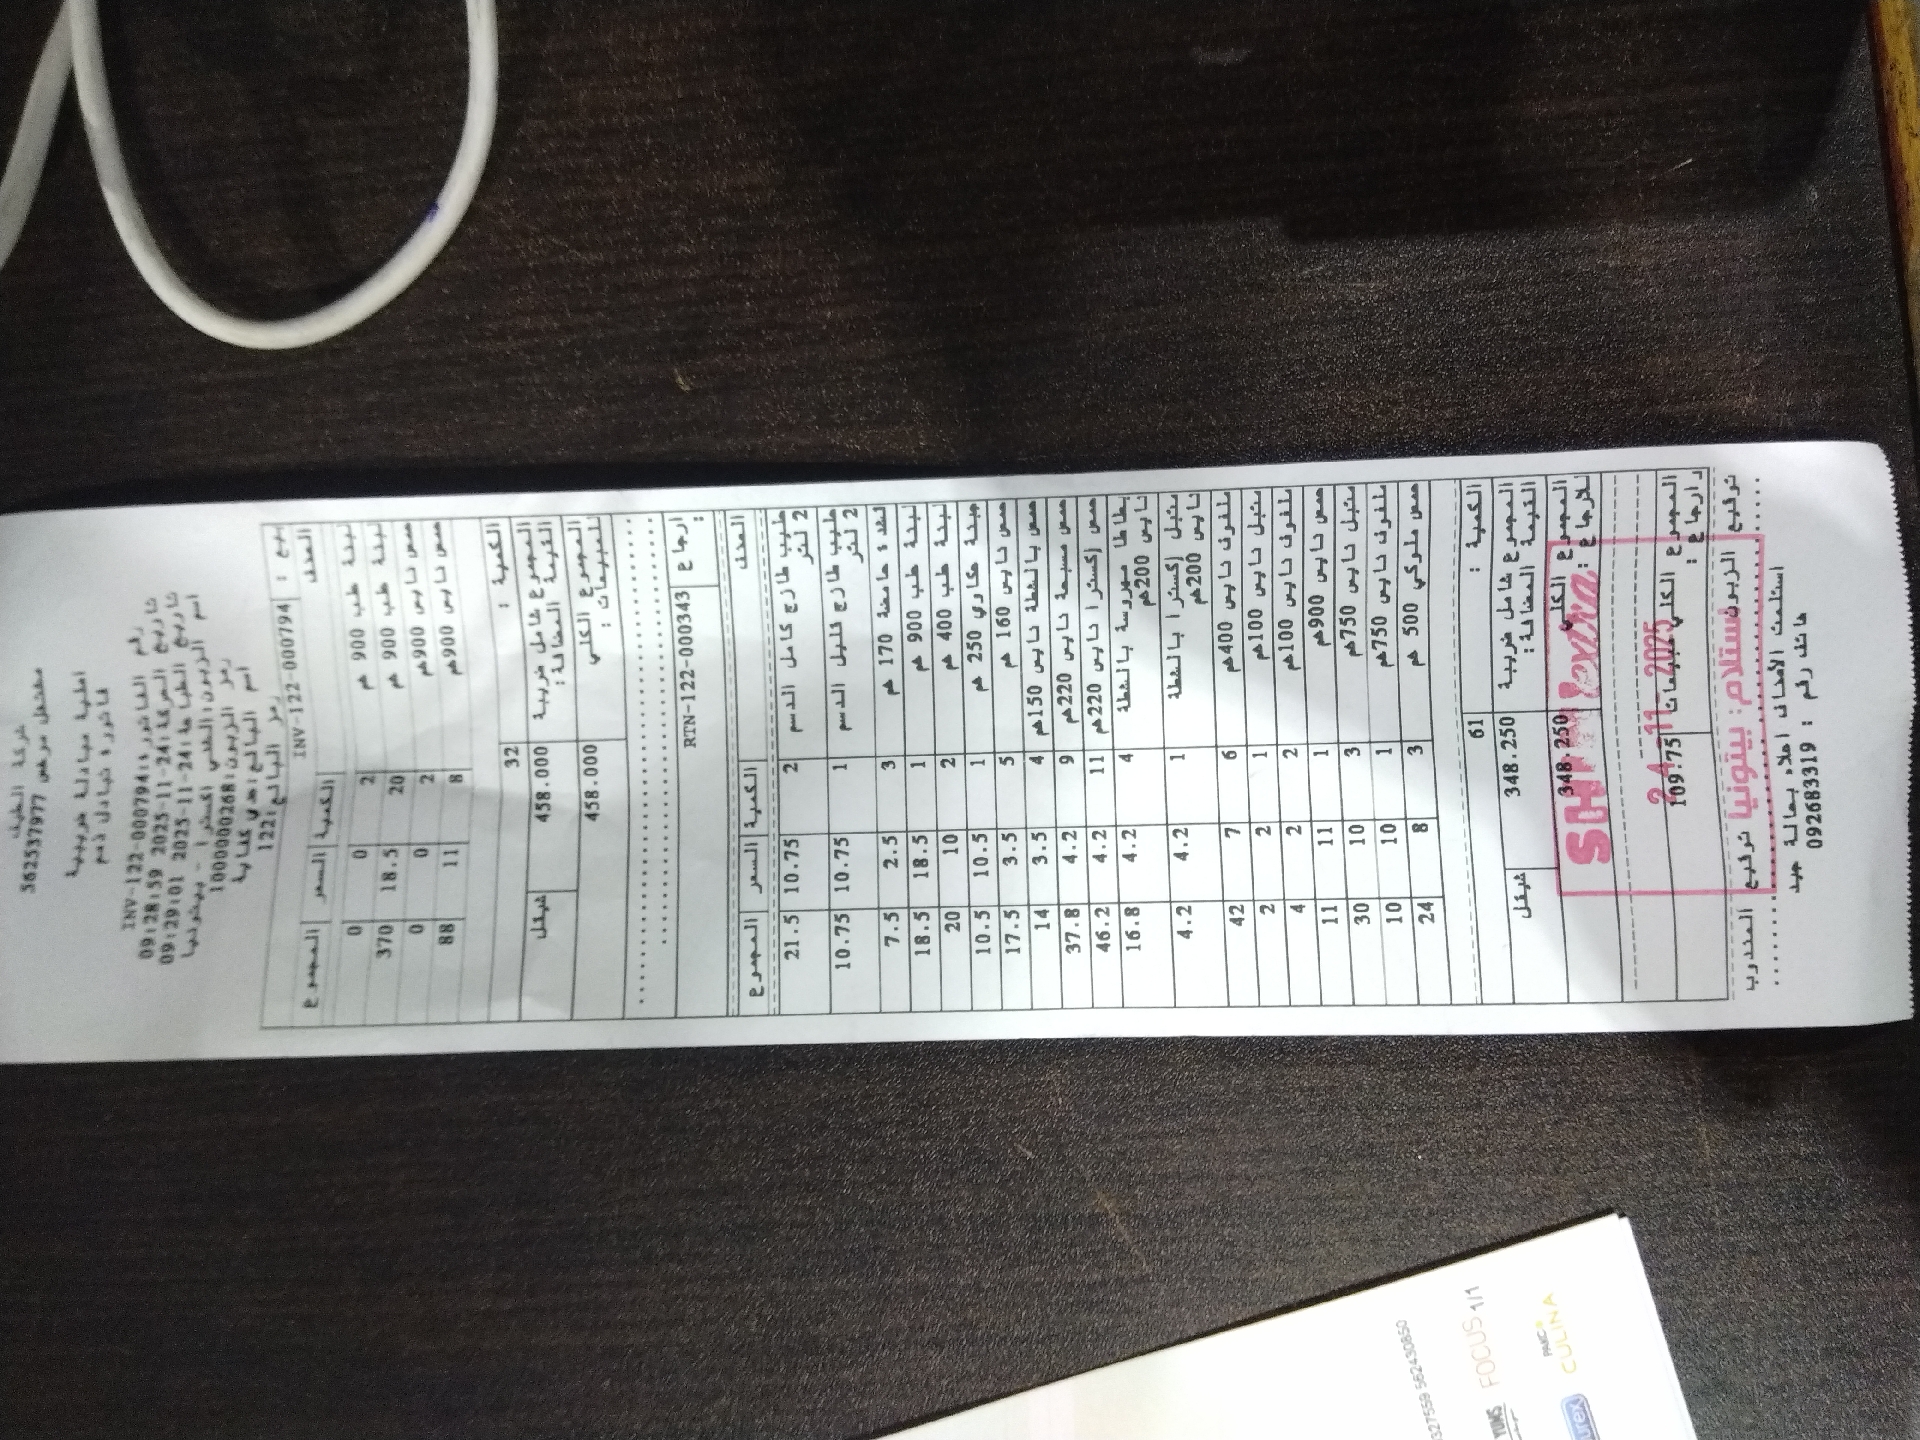 شركة الطيف
مشتغل مرخص 562537977
اصلية مبادلة ضريبية
فاتورة تبادل ذمم
رقم الفاتورة: INV-122-000794
تاريخ الحركة: 24-11-2025 09:28:59
تاريخ الطباعة: 24-11-2025 09:29:01
اسم الزبون: الغني اكسترا - بيتونيا
رمز الزبون: 100000268
رمز البائع: 122
بيع : INV-122-000794
الصنف الكمية السعر المجموع
لبنة طب 900 غم 2 0 0
لبنة طب 900 غم 20 18.5 370
حمص نايس 900غم 2 0 0
حمص نايس 900غم 8 11 88
الكمية : 32
المجموع شامل ضريبة القيمة المضافة: 458.000 شيكل
المجموع الكلي للمبيعات : 458.000
ارجاع : RTN-122-000343
الصنف الكمية السعر المجموع
حليب طازج كامل الدسم 2 لتر 2 10.75 21.5
حليب طازج قليل الدسم 2 لتر 1 10.75 10.75
حامضة 170 غم 3 2.5 7.5
لبنة طب 900 غم 1 18.5 18.5
لبنة طب 400 غم 2 10 20
جبنة عكاوي 250 غم 1 10.5 10.5
حمص نايس 160 غم 5 3.5 17.5
حمص بالشطة نايس 150غم 4 3.5 14
حمص مسبحة نايس 220غم 9 4.2 37.8
حمص إكسترا نايس 220غم 11 4.2 46.2
بطاطا مهروسة بالشطة نايس 200غم 4 4.2 16.8
متبل إكسترا بالشطة نايس 200غم 1 4.2 4.2
ملفوف نايس 400غم 6 7 42
متبل نايس 100غم 1 2 2
ملفوف نايس 100غم 2 2 4
حمص نايس 900غم 1 11 11
متبل نايس 750غم 3 10 30
ملفوف نايس 750غم 1 10 10
حمص ملوكي 500 غم 3 8 24
الكمية : 61
المجموع شامل ضريبة القيمة المضافة: 348.250 شيكل
المجموع الكلي للارجاع : 348.250
المجموع الكلي للمبيعات وارجاع : 109.75
24-11-2025
إستلام: بيتونيا
توقيع الزبون توقيع المندوب
استلمت الأصناف اعلاه بحالة جيدة
هاتف رقم : 092683319
327559 562430850
YUNS FOCUS 1/1
PANC CULINA
urex